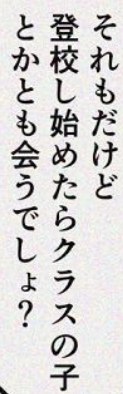 それもだけど
登校し始めたらクラスの子
とかとも会うでしょ？